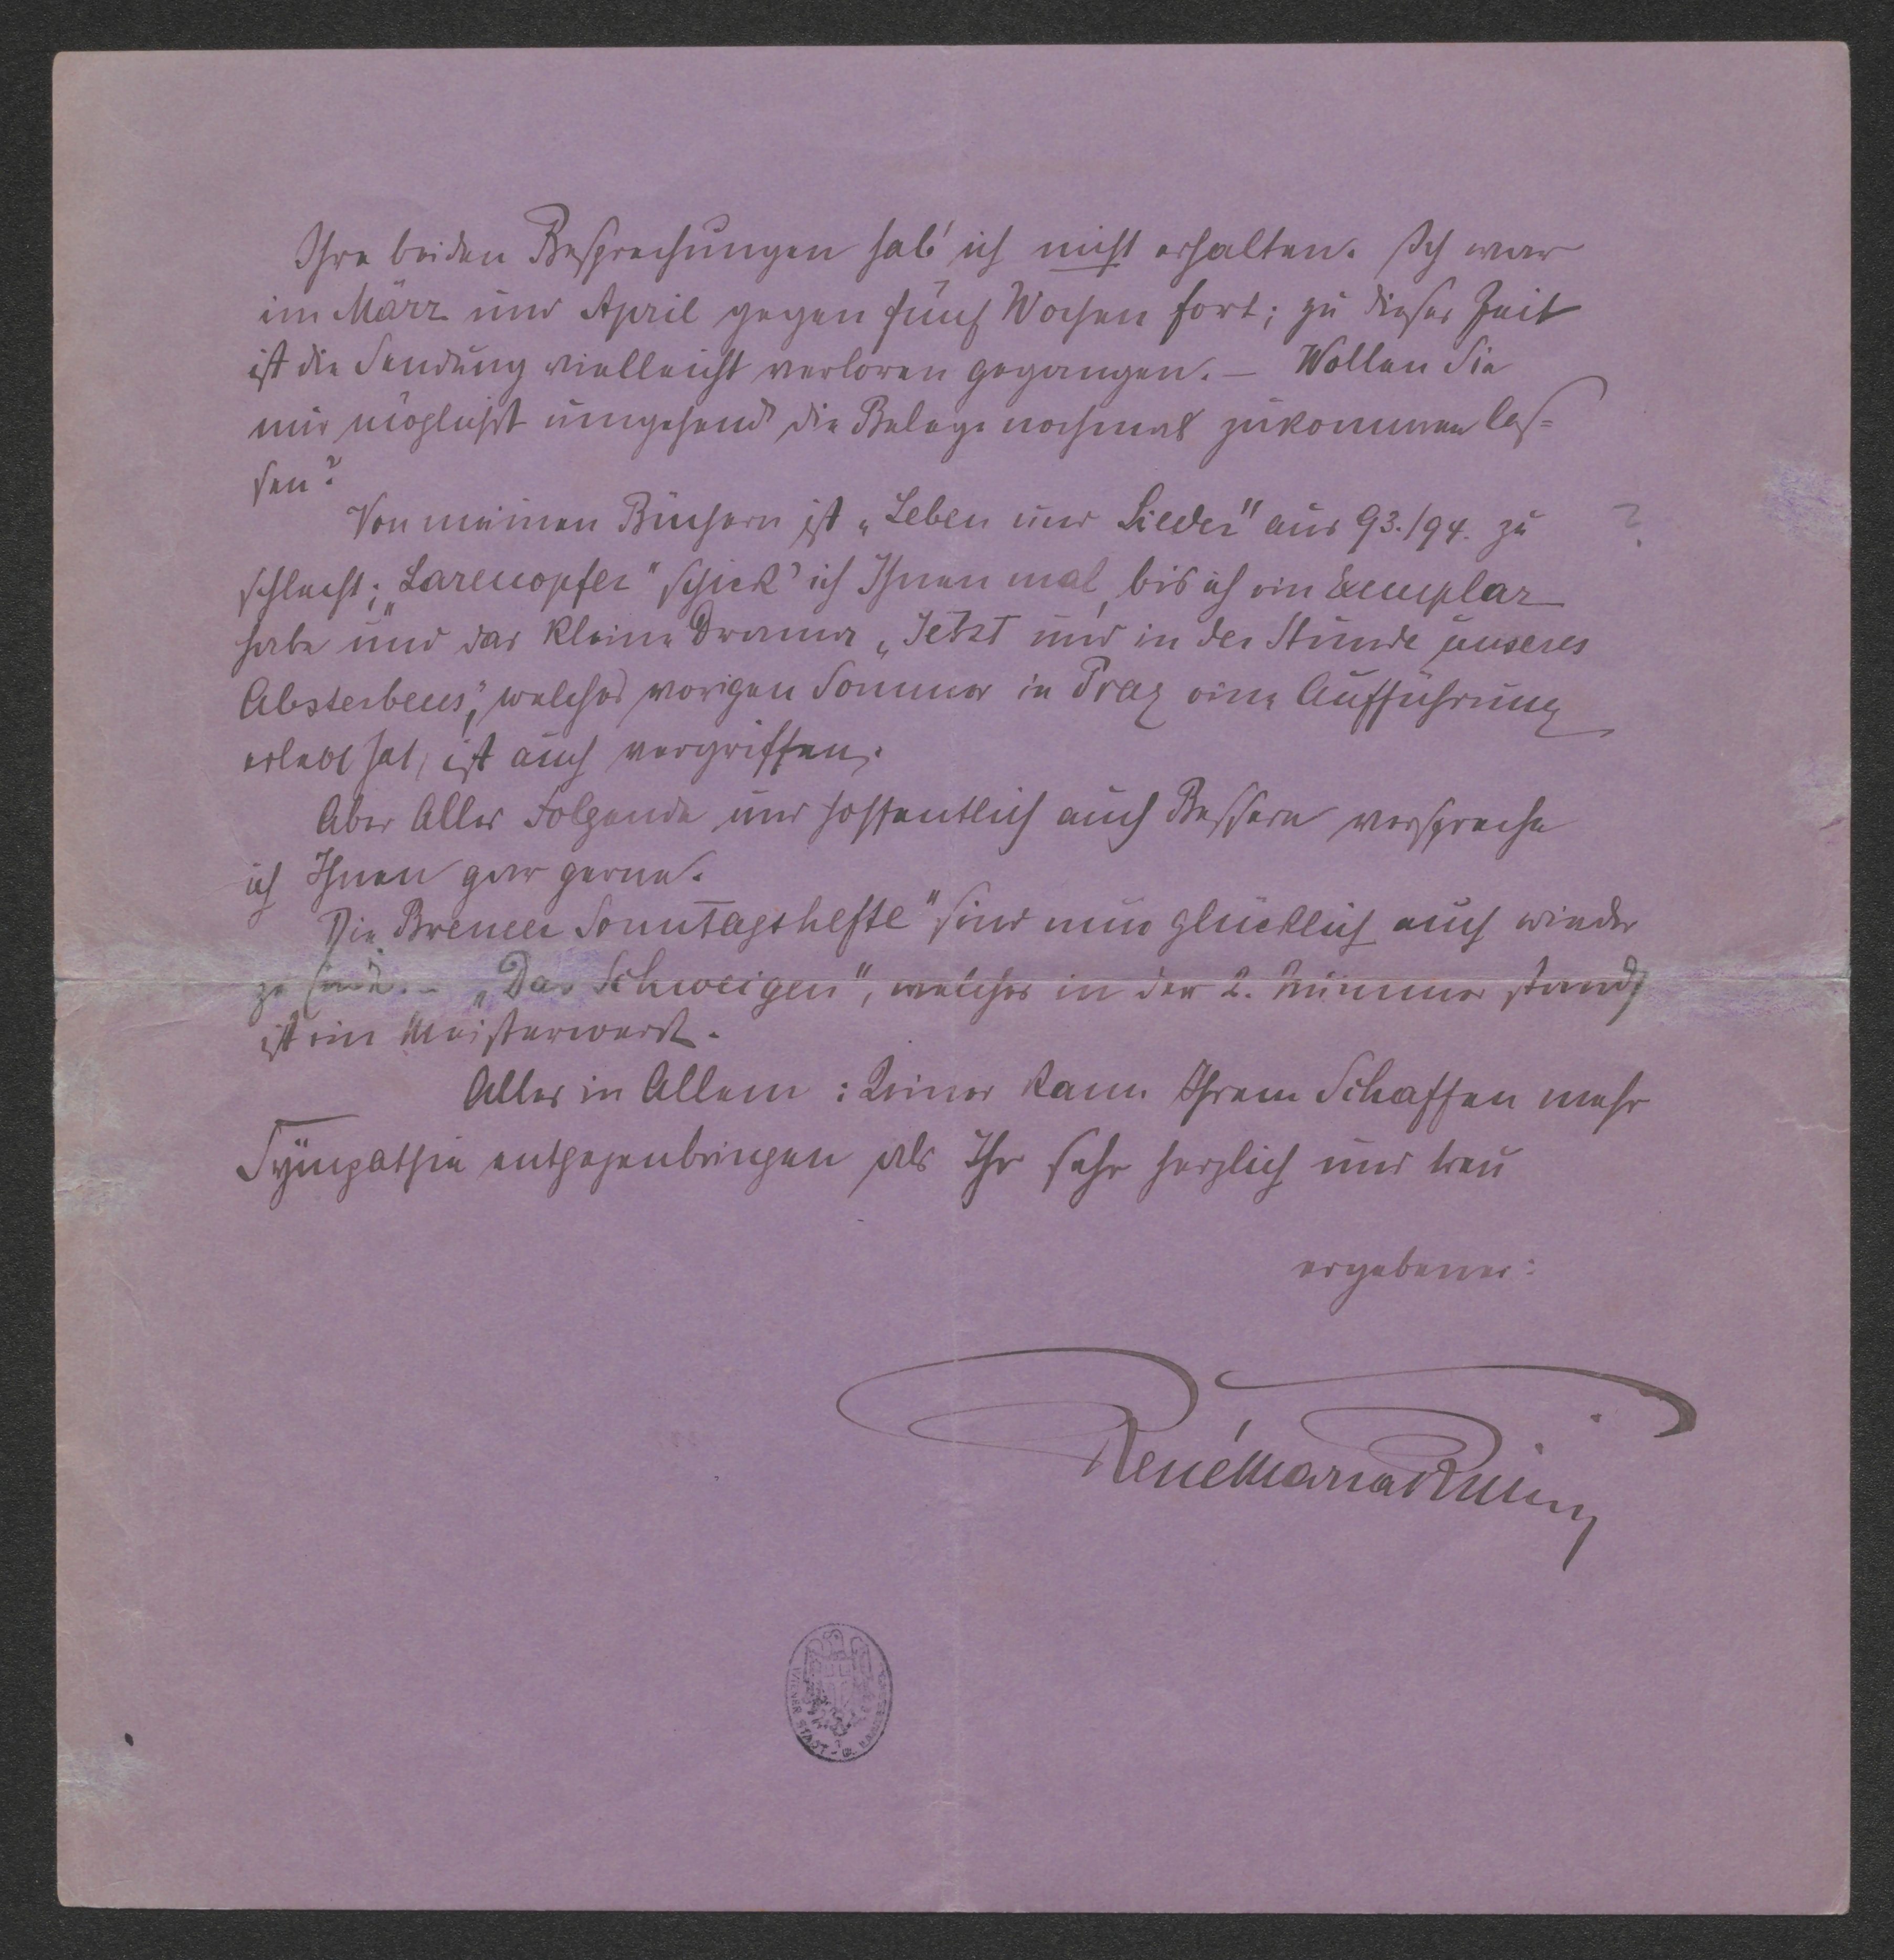 Ihre beiden Besprechungen hab' ich nicht erhalten. Ich war
im März und April gegen fünf Wochen fort; zu dieser Zeit
ist die Sendung vielleicht verloren gegangen. – Wollen Sie
mir möglichst umgehend die Belege nochmals zukommen las=
sen?
Von meinen Büchern ist „Leben und Lieder" aus 93./94. zu
?
schlecht; „Larenopfer" schick' ich Ihnen mal, bis ich ein Exemplar
habe und das kleine Drama „Jetzt und in der Stunde unseres
Absterbens", welches vorigen Sommer in Prag eine Aufführung
erlebt hat, ist auch vergriffen.
Aber Alles Folgende und hoffentlich auch Bessere verspreche
ich Ihnen gar gerne.
Die „Bremer Sonntagshefte" sind nun glücklich auch wieder
zu Ende. – „Das Schweigen", welches in der 2. Nummer stand,
ist ein Meisterwerk.
Alles in Allem: Keiner kann Ihrem Schaffen mehr
Sympathie entgegenbringen als Ihr sehr herzlich und treu
ergebener:
René Maria Rilke
WIENER STADT-